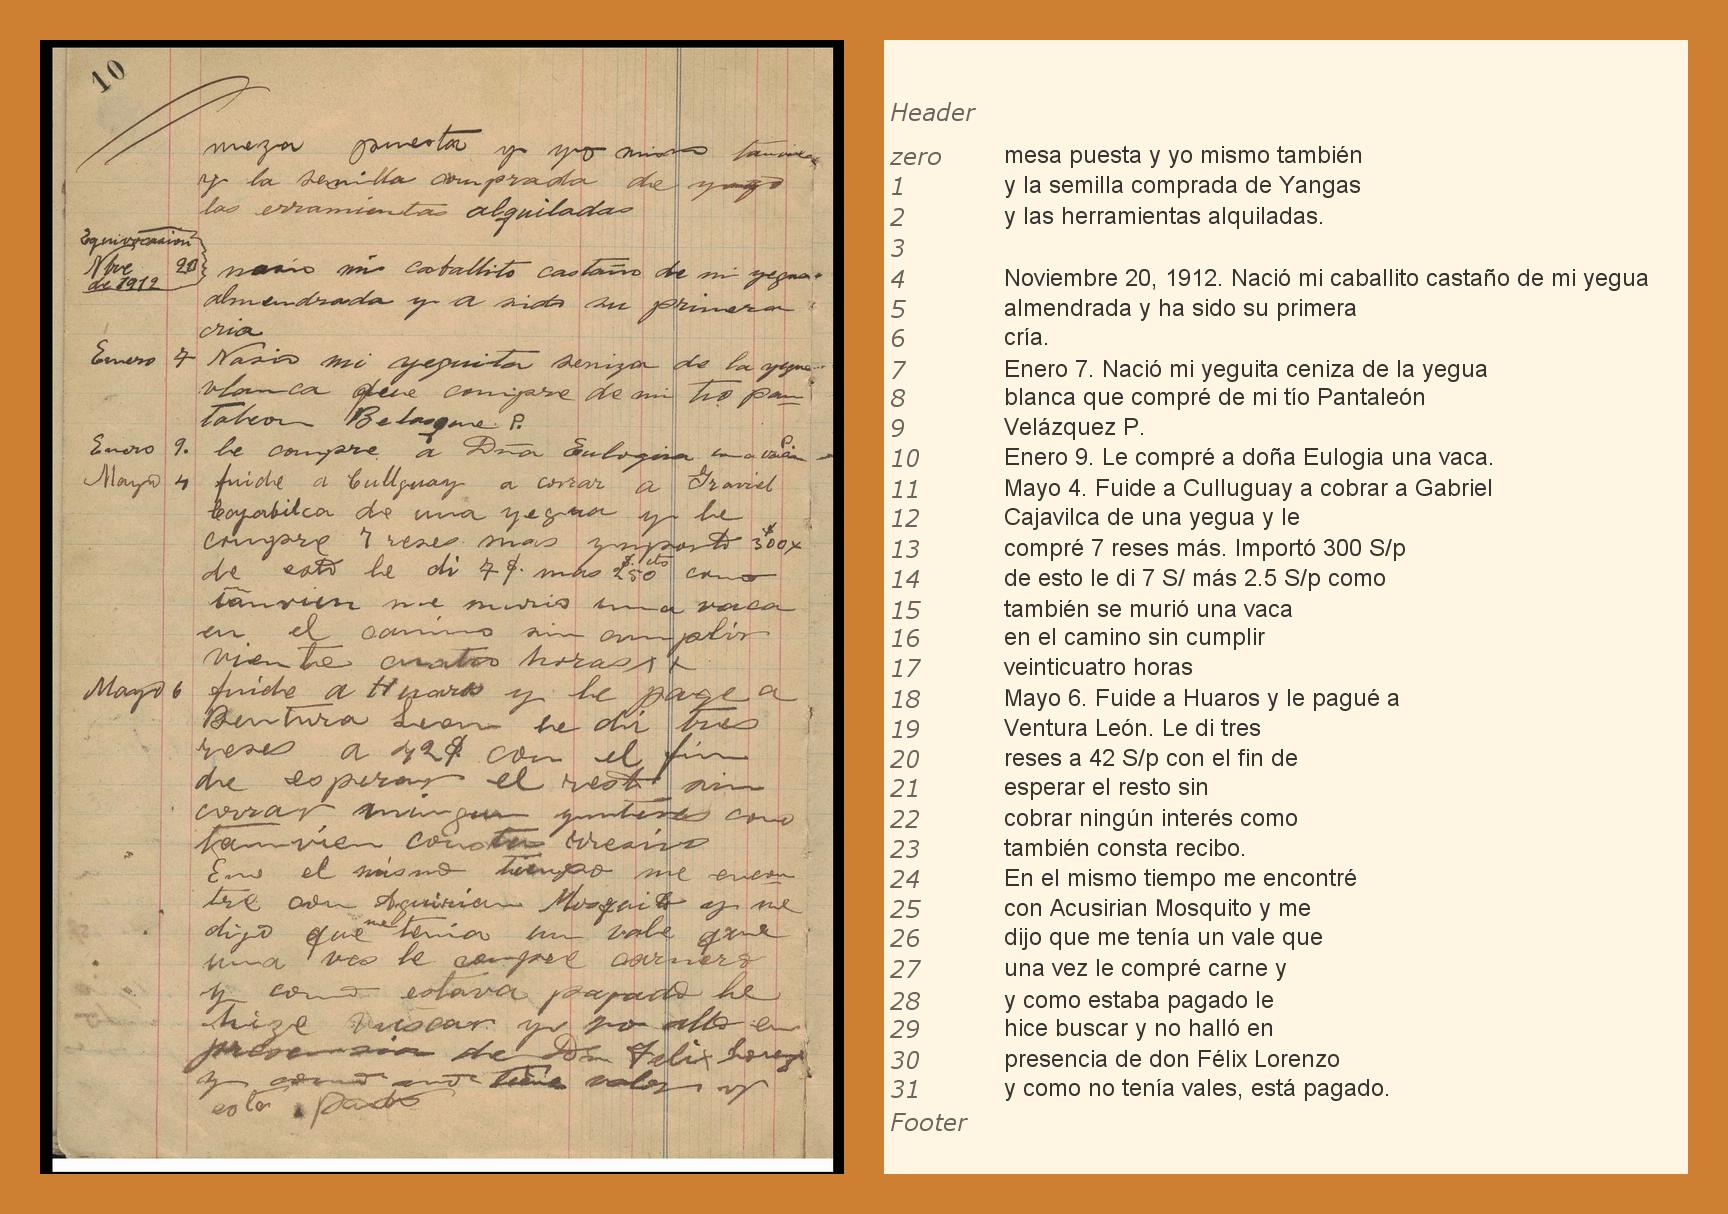 10
meza puesta y yo mismo tanvien
y la semilla comprada de
las erramientas alquiladas
Equivocasion
Nbre 20
de 1912
nasio mi caballito castaño de mi yegua
almendrada y a sido su primera
cria
Enero 7 Nasio mi yeguita seniza de la yegua
vlanca que compre de mi tio pan
taleon Belasque P.
Enero 9. le compre a Dña Eulogia una vaca
Mayo 4 fuide a Cullguay a corrar a Graviel
de una yegua y le
compre 7 reses mas ymporto $ 300
de esto le di 7 $. mas como
tanvien me murio una vaca
en el camino sin cumplir
viente cuatro horas x x
Mayo 6 fuide a Huaros y le page a
Bentura Leon le di tres
reses a 42 $ con el fin
de esperar el resto sin
corrar ningun ynteres como
tanvien consta rresivo
En el mismo tiempo me encon
tre con Mosquito y me
dijo que me tenia un vale que
una ves le compre carnero
y como estava pagado le
hize vuscar y no allo en
presensia de Dn Felix Lorenzo
y como no tenia vales y
esta pagado
Header
zero mesa puesta y yo mismo también
1 y la semilla comprada de Yangas
2 y las herramientas alquiladas.
3
4 Noviembre 20, 1912. Nació mi caballito castaño de mi yegua
5 almendrada y ha sido su primera
6 cría.
7 Enero 7. Nació mi yeguita ceniza de la yegua
8 blanca que compré de mi tío Pantaleón
9 Velázquez P.
10 Enero 9. Le compré a doña Eulogia una vaca.
11 Mayo 4. Fuide a Culluguay a cobrar a Gabriel
12 Cajavilca de una yegua y le
13 compré 7 reses más. Importó 300 S/p
14 de esto le di 7 S/ más 2.5 S/p como
15 también se murió una vaca
16 en el camino sin cumplir
17 veinticuatro horas
18 Mayo 6. Fuide a Huaros y le pagué a
19 Ventura León. Le di tres
20 reses a 42 S/p con el fin de
21 esperar el resto sin
22 cobrar ningún interés como
23 también consta recibo.
24 En el mismo tiempo me encontré
25 con Acusirian Mosquito y me
26 dijo que me tenía un vale que
27 una vez le compré carne y
28 y como estaba pagado le
29 hice buscar y no halló en
30 presencia de don Félix Lorenzo
31 y como no tenía vales, está pagado.
Footer